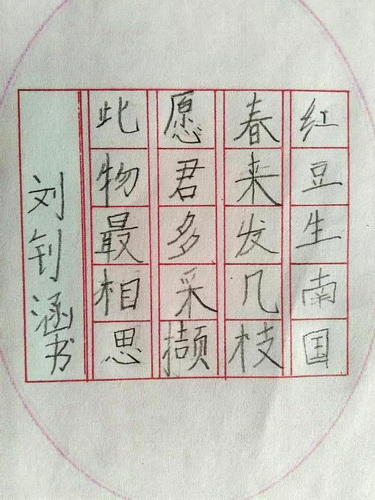 红豆生南国
春来发几枝
愿君多采撷
此物最相思
刘钊涵书